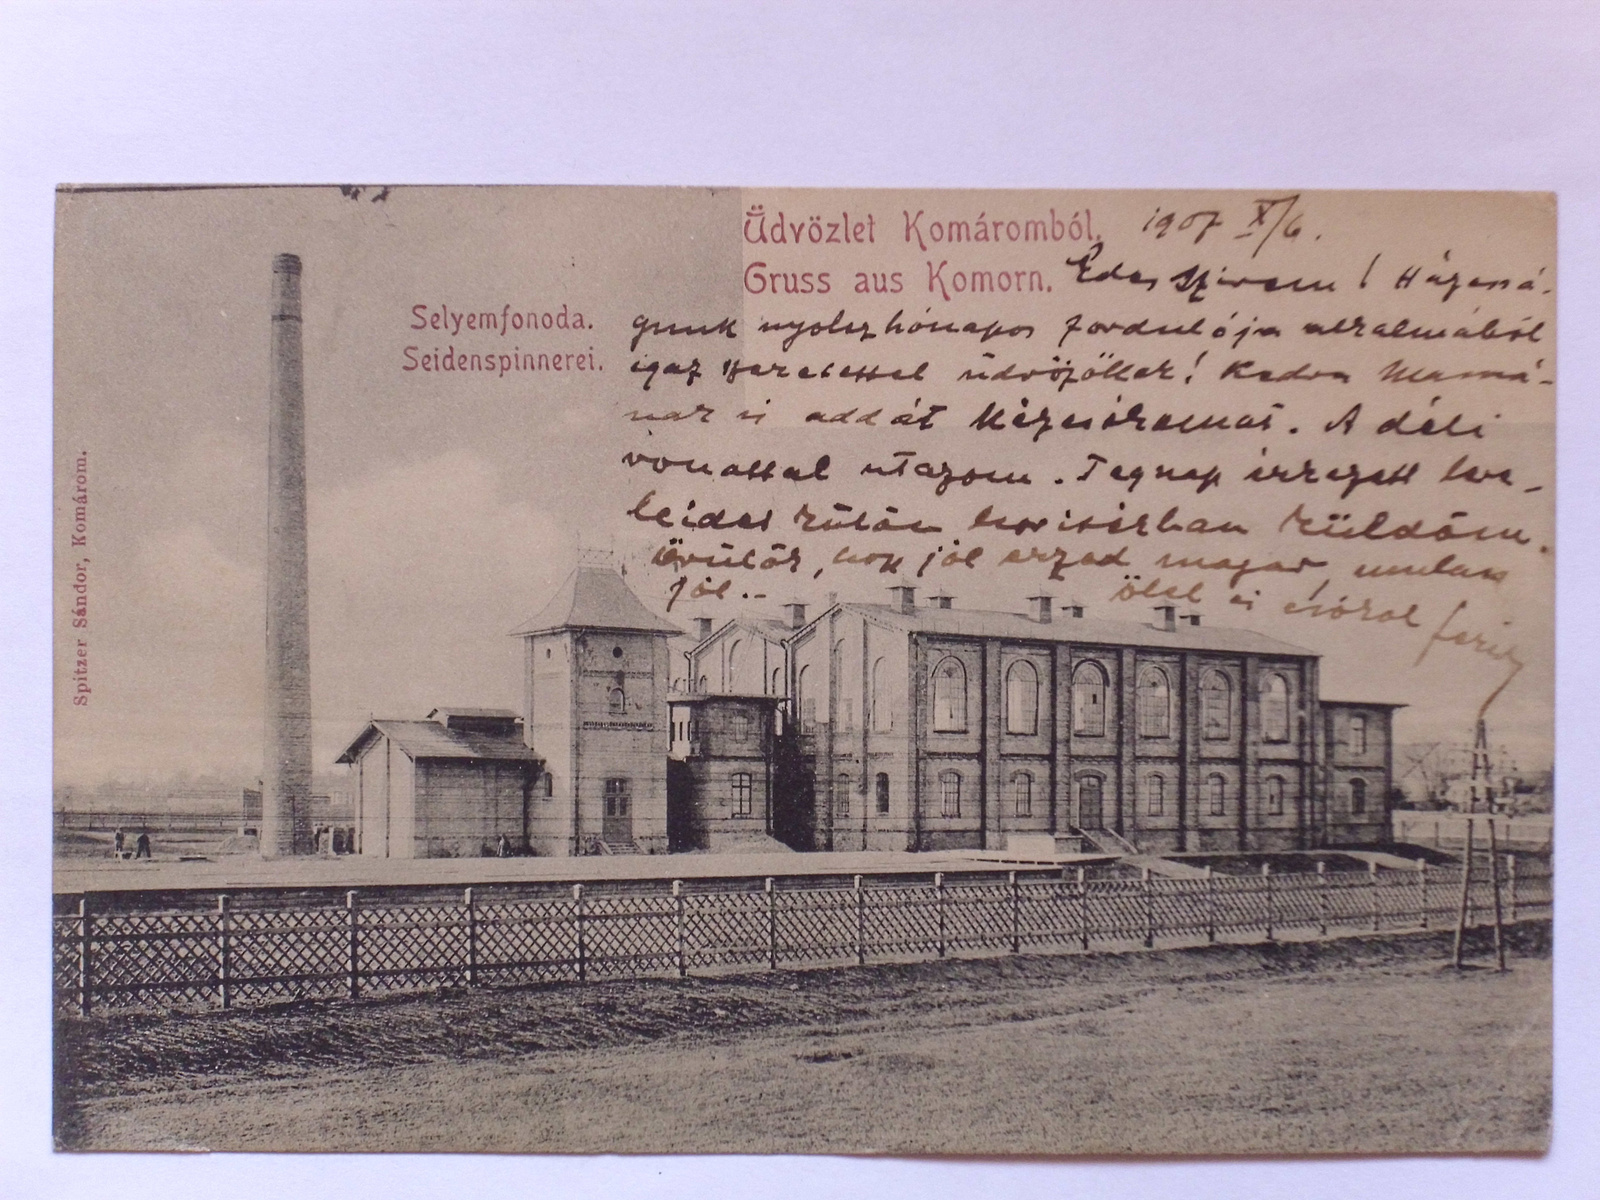 Üdvözlet Komáromból.
1907 X/6.
Gruss aus Komorn.
Édes Szivem! Házassá-
gunk nyolcz hónapos fordulója alkalmából
igaz szeretettel üdvözöllek! Kedves Mamá-
nak is addát kézcsókomat. A déli
vonattal utazom. Tegnap érkezett leve-
leidet külön borítékban küldöm.
Örülök, hogy jól érzed magad, mulass
jól..
ölel és csókol Feri
Selyemfonoda.
Seidenspinnerei.
Spitzer Sándor, Komárom.